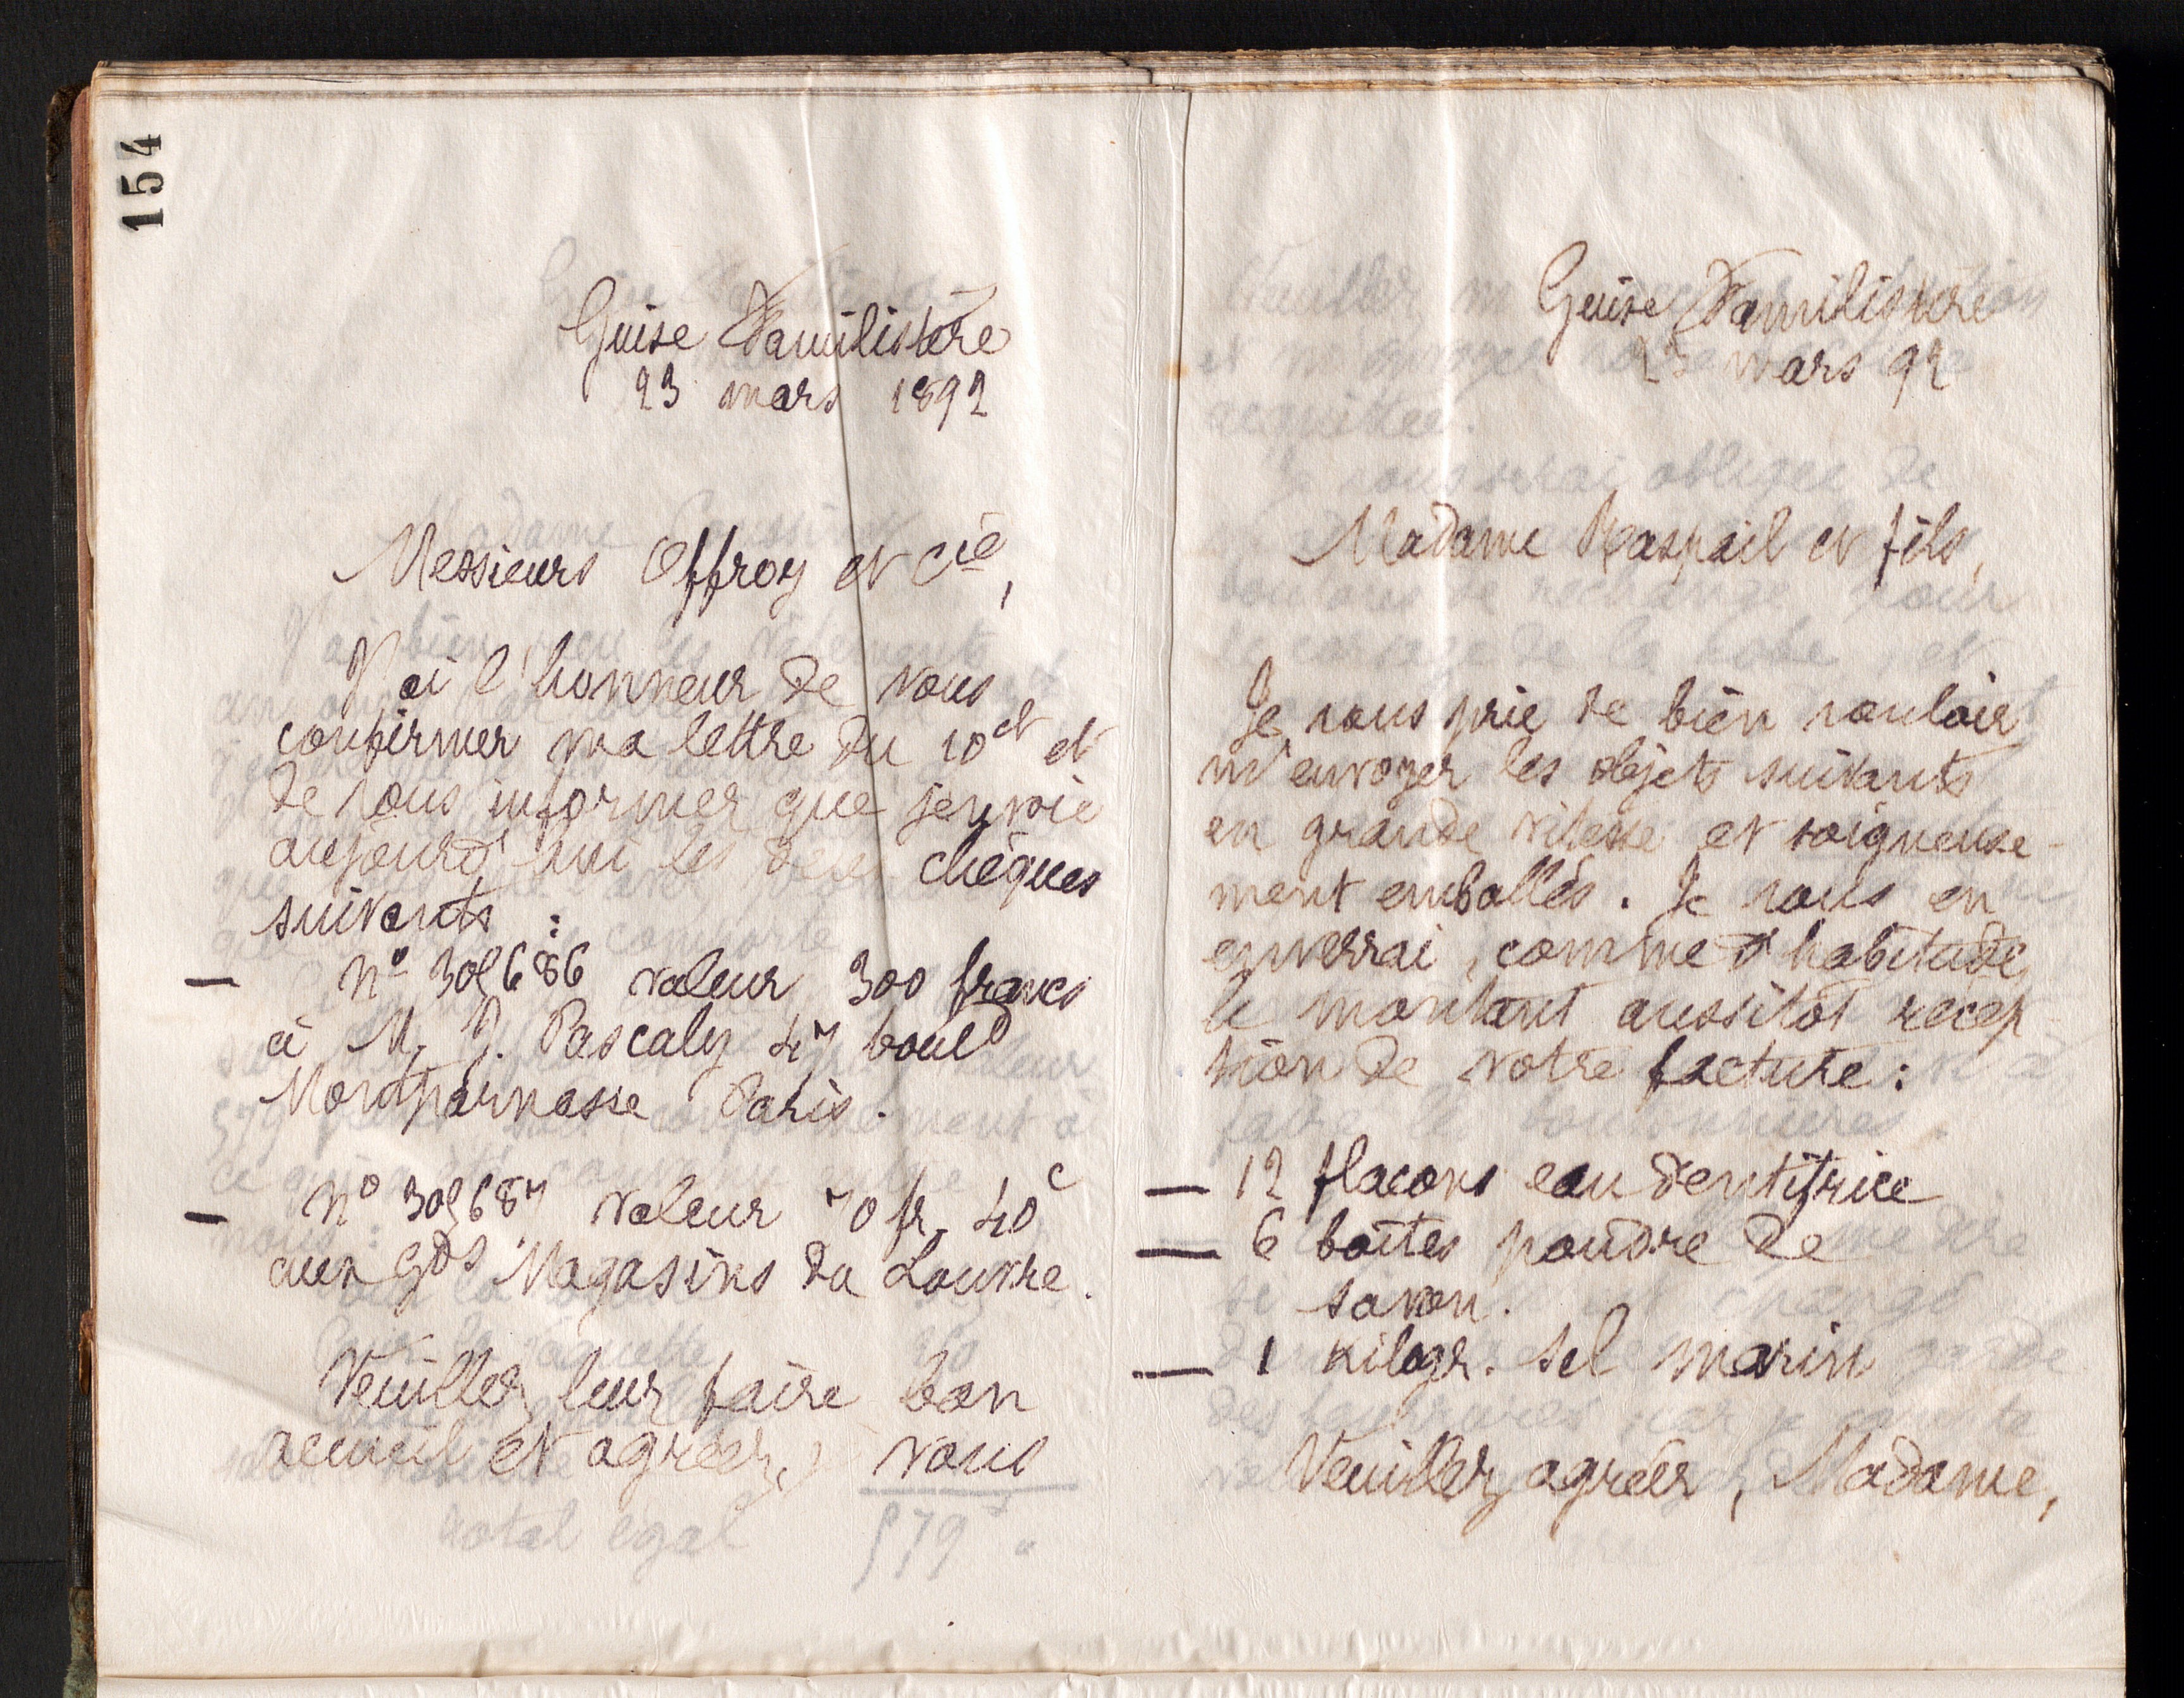 154
Guise Familistère
23 mars 1892
Messieurs Offroy et Cie,
J'ai l'honneur de vous
confirmer ma lettre du 10 ct et
de vous informer que j'envoie
aujourd'hui les deux chèques
suivants :
— No 309686 valeur 300 francs
à M. J. Pascaly 47 bould
Montparnasse Paris.
— No 309687 valeur 70 fr. 40 c
aux Gds Magasins du Louvre.
Veuillez leur faire bon
accueil et agréez,
Guise Familistère
23 mars 92
Madame Raspail et fils,
Je vous prie de bien vouloir
m'envoyer les objets suivants
en grande vitesse et soigneuse-
ment emballés. Je vous en
enverrai, comme d'habitude,
le montant aussitôt récep-
tion de votre facture :
— 12 flacons eau dentifrice
— 6 boîtes poudre de
savon.
— 1 kilogr. sel marin
Veuillez agréer, Madame,